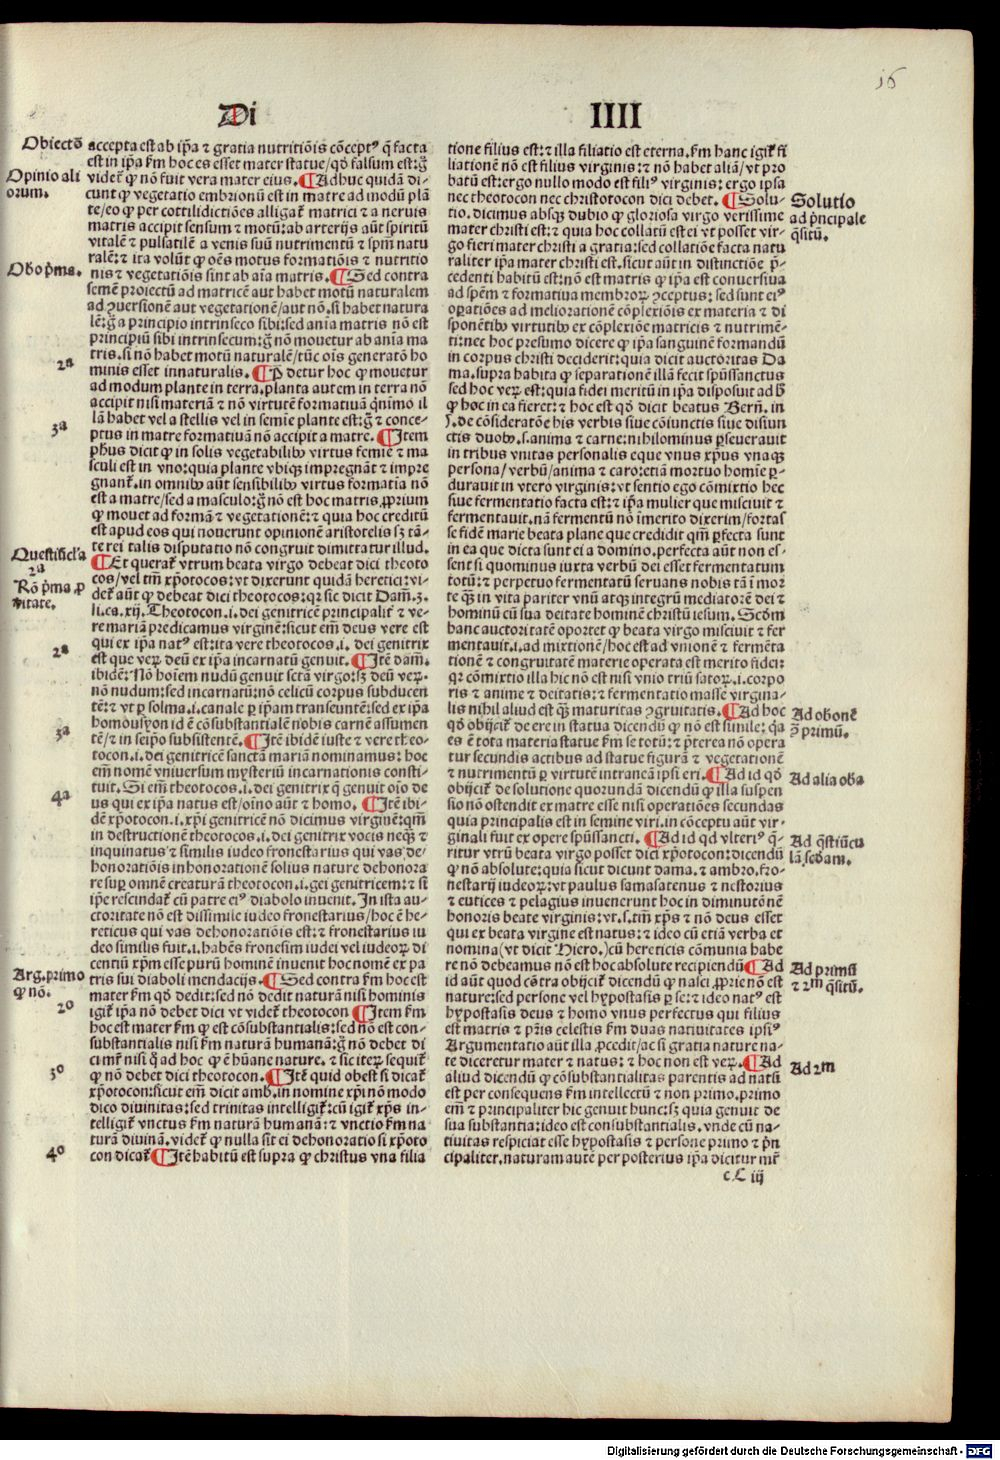 16
Di
IIII
Obiectō
Opinio ali
orum.
Obo p̄ma.
2a
3a
Questiūcl'a
2a
Rō p̄ma ꝓ
ʋitate.
2a
3a
4a
Arg. primo
ꝙ nō.
2o
3o
4o
accepta est ab ip̄a ⁊ gratia nutritiōis cōceptꝰ q̄ facta
est in ip̄a k̄m hoc es esset mater statue/qd̄ falsum est: g̊
videt̄ ꝙ nō fuit vera mater eius. ¶ Adhuc quidā di⸗
cunt ꝙ vegetatio embrionū est in matre ad modū plā
te/eo ꝙ per cottilidictiōes alligat̄ matrici ⁊ a neruis
matris accipit sensum ⁊ motū: ab arterijs aūt spiritū
vitalē ⁊ pulsatilē a venis suū nutrimentū ⁊ sp̄m natu
ralē: ⁊ ita volūt ꝙ oēs motus formatiōis ⁊ nutritio
nis ⁊ vegetatiōis sint ab aīa matris. ¶ Sed contra
semē proiectū ad matricē aut habet motū naturalem
ad ꝯuersionē aut vegetationē/aut nō. si habet natura
lē: g̊ a principio intrinseco sibi: sed anīa matris nō est
principiū sibi intrinsecum: g̊ nō mouetur ab anīa ma
tris. si nō habet motū naturalē/tūc oīs generatō ho
minis esset innaturalis. ¶ P̄ detur hoc ꝙ mouetur
ad modum plante in terra. planta autem in terra nō
accipit nisi materiā ⁊ nō virtutē formatiuā qnīmo il
lā habet vel a stellis vel in semīe plante est: g̊ ⁊ conce⸗
ptus in matre formatiuā nō accipit a matre. ¶ Item
ph̄us dicit ꝙ in solis vegetabilibꝰ virtus femīe ⁊ ma
sculi est in vno: quia plante vbiqȝ impregnāt ⁊ impre
gnant̄. in omnibꝰ aūt sensibilibꝰ virtus formatīa nō
est a matre/sed a masculo: g̊ nō est hoc matris ꝓprium
ꝙ mouet ad formā ⁊ vegetationē: ⁊ quia hoc creditū
est apud eos qui nouerunt opinionē aristotelis sȝ tā⸗
te rei talis disputatio nō congruit dimittatur illud.
¶ Et querat̄ vtrum beata virgo debeat dici theoto
cos/vel tm̄ xp̄otocos: vt dixerunt quidā heretici: vi⸗
det̄ aūt ꝙ debeat dici theotocos: qꝛ sic dicit Dam̄. 3.
li. ca. xij. Theotocon .i. dei genitricē principalit̄ ⁊ ve⸗
re mariā predicamus virginē: sicut em̄ deus vere est
qui ex ip̄a natꝰ est: ita vere theotocos .i. dei genitrix
est que veꝝ deū ex ip̄a incarnatū genuit. ¶ Itē dam̄.
ibidē: Nō hoīem nudū genuit sctā virgo: sȝ deū veꝝ.
nō nudum: sed incarnatū: nō celicū corpus subducen
tē: ⁊ vt ꝑ solma .i. canale ꝑ ip̄am transeuntē: sed ex ip̄a
homousyon id ē cōsubstantialē nobis carnē assumen
tē/⁊ in seip̄o subsistentē. ¶ Itē ibidē iuste ⁊ vere theo⸗
tocon .i. dei genitricē sanctā mariā nominamus: hoc
em̄ nomē vniuersum mysteriū incarnationis consti⸗
tuit. Si em̄ theotocos .i. dei genitrix q̄ genuit oīo de
us qui ex ip̄a natus est/oīno aūt ⁊ homo. ¶ Itē ibi⸗
dē xp̄otocon .i. xp̄i genitricē nō dicimus virginē: qm̄
in destructionē theotocos .i. dei genitrix vocis neqȝ ⁊
inquinatus ⁊ similis iudeo fronestarius qui vas de⸗
honorationis inhonorationē solius nature dehonora
re suꝑ omnē creaturā theotocon .i. gei genitricem: ⁊ si
ip̄e rescindat̄ cū patre eiꝰ diabolo inuenit. In ista au⸗
ctoritate nō est dissimile iudeo fronestarius/hoc ē he⸗
reticus qui vas dehonoratiōis est: ⁊ fronestarius iu
deo similis fuit .i. habēs fronesim iudei vel iudeoꝝ di
centiū xp̄m esse purū hominē inuenit hoc nomē ex pa
tris sui diaboli mendacijs. ¶ Sed contra k̄m hoc est
mater k̄m qd̄ dedit: sed nō dedit naturā nisi hominis
igit̄ ip̄a nō debet dici vt videt̄ theotocon ¶ Item k̄m
hoc est mater k̄m ꝙ est cōsubstantialis: sed nō est con⸗
substantialis nisi k̄m naturā humanā: g̊ nō debet di
ci mr̄ nisi q̊ ad hoc ꝙ ē hūane nature. ⁊ sic iteꝝ sequit̄
ꝙ nō debet dici theotocon. ¶ Itē quid obest si dicat̄
xp̄otocon: sicut em̄ dicit amb. in nomine xp̄i nō modo
dico diuinitas: sed trinitas intelligit̄: cū igit̄ xp̄s in⸗
telligit̄ vnctus k̄m naturā humanā: ⁊ vnctio k̄m na
turā diuinā. videt̄ ꝙ nulla sit ei dehonoratio si xp̄oto
con dicat̄ ¶ Itē habitū est supra ꝙ christus vna filia
tione filius est: ⁊ illa filiatio est eterna. k̄m hanc igit̄ fi
liationē nō est filius virginis: ⁊ nō habet aliā/vt pro
batū est: ergo nullo modo est filiꝰ virginis: ergo ipsa
nec theotocon nec christotocon dici debet. ¶ Solu⸗
tio. dicimus absqȝ dubio ꝙ gloriosa virgo verissime
mater christi est: ⁊ quia hoc collatū est ei vt posset vir⸗
go fieri mater christi a gratia: sed collatiōe facta natu
raliter ip̄a mater christi est. sicut aūt in distinctiōe p̄⸗
cedenti habitū est: nō est matris ꝙ ip̄a est conuersiua
ad sp̄em ⁊ formatiua membroꝝ ꝯceptus: sed sunt eiꝰ
oꝑatiōes ad meliorationē cōplexiōis ex materia ⁊ di
sponētibꝰ virtutibꝰ ex cōplexiōe matricis ⁊ nutrimē⸗
ti: nec hoc presumo dicere ꝙ ip̄a sanguinē formandū
in corpus christi deciderit: quia dicit auctoritas Da
ma. supra habita ꝙ separationē illā fecit sp̄ussanctus
sed hoc veꝝ est: quia fidei meritū in ip̄a disposuit ad b̄
ꝙ hoc in ea fieret: ⁊ hoc est qd̄ dicit beatus Bern̄. in
5. de cōsideratōe his verbis siue cōiunctis siue disiun
ctis duobꝰ .s. anima ⁊ carne: nihilominus ꝑseuerauit
in tribus vnitas personalis eque vnus xp̄us vnaqȝ
persona/verbū/anima ⁊ caro: etiā mortuo homīe ꝑ⸗
durauit in vtero virginis: vt sentio ego cōmixtio hec
siue fermentatio facta est: ⁊ ip̄a mulier que miscuit ⁊
fermentauit. nā fermentū nō īmerito dixerim/fortas
se fidē marie beata plane que credidit qm̄ ꝑfecta sunt
in ea que dicta sunt ei a domino. perfecta aūt non es⸗
sent si quominus iuxta verbū dei esset fermentatum
totū: ⁊ perpetuo fermentatū seruans nobis tā ī mor
te q̄ȝ in vita pariter vnū atqȝ integrū mediatorē dei ⁊
hominū cū sua deitate hominē christū iesum. Scd̄m
hanc auctoritatē oportet ꝙ beata virgo miscuit ⁊ fer
mentauit .i. ad mixtionē/hoc est ad vnionē ⁊ fermēta
tionē ⁊ congruitatē materie operata est merito fidei:
qꝛ cōmixtio illa hic nō est nisi vnio triū satoꝝ .i. corpo
ris ⁊ anime ⁊ deitatis: ⁊ fermentatio masse virgina⸗
lis nihil aliud est q̄ȝ maturitas ꝯgruitatis. ¶ Ad hoc
qd̄ obijcit̄ de ere in statua dicendū ꝙ nō est simile: qa
es ē tota materia statue k̄m se totū: ⁊ p̄terea nō opera
tur secundis actibus ad statue figurā ⁊ vegetationē
⁊ nutrimentū ꝑ virtutē intraneā ipsi eri. ¶ Ad id qd̄
obijcit̄ de solutione quorundā dicendū ꝙ illa suspen
sio nō ostendit ex matre esse nisi operatiōes secundas
quia principalis est in semine viri. in cōceptu aūt vir⸗
ginali fuit ex opere sp̄ussancti. ¶ Ad id qd̄ vlteriꝰ q̄⸗
ritur vtrū beata virgo posset dici xp̄otocon: dicendū
ꝙ nō absolute: quia sicut dicunt dama. ⁊ ambro. fro⸗
nestarij iudeoꝝ: vt paulus samasatenus ⁊ nestorius
⁊ eutices ⁊ pelagius inuenerunt hoc in diminutōnē
honoris beate virginis: vt .s. tm̄ xp̄s ⁊ nō deus esset
qui ex beata virgine est natus: ⁊ ideo cū etiā verba et
nomina (vt dicit Hiero.) cū hereticis cōmunia habe
re nō debeamus nō est hoc absolute recipiendū ¶ Ad
id aūt quod cōtra obijcit̄ dicendū ꝙ nasci ꝓprie nō est
nature: sed persone vel hypostasis ꝑ se: ⁊ ideo natꝰ est
hypostasis deus ⁊ homo vnus perfectus qui filius
est matris ⁊ p̄ris celestis k̄m duas natiuitates ipsiꝰ
Argumentatio aūt illa ꝓcedit/ac si gratia nature na⸗
te diceretur mater ⁊ natus: ⁊ hoc non est veꝝ. ¶ Ad
aliud dicendū ꝙ cōsubstantialitas parentis ad natū
est per consequens k̄m intellectū ⁊ non primo. primo
em̄ ⁊ principaliter hic genuit hunc: sȝ quia genuit de
sua substantia: ideo est consubstantialis. vnde cū na⸗
tiuitas respiciat esse hypostasis ⁊ persone primo ⁊ p̄n
cipaliter. naturam autē per posterius ip̄a dicitur mr̄
Solutio
ad p̄ncipale
q̄situ.
Ad obonē
ꝯ̄ primū.
Ad alia oba
Ad q̄stiūcu
lā scd̄am.
Ad primū
⁊ 2m q̄situ.
Ad 2m
c. C iij
Digitalisierung gefördert durch die Deutsche Forschungsgemeinschaft - DFG